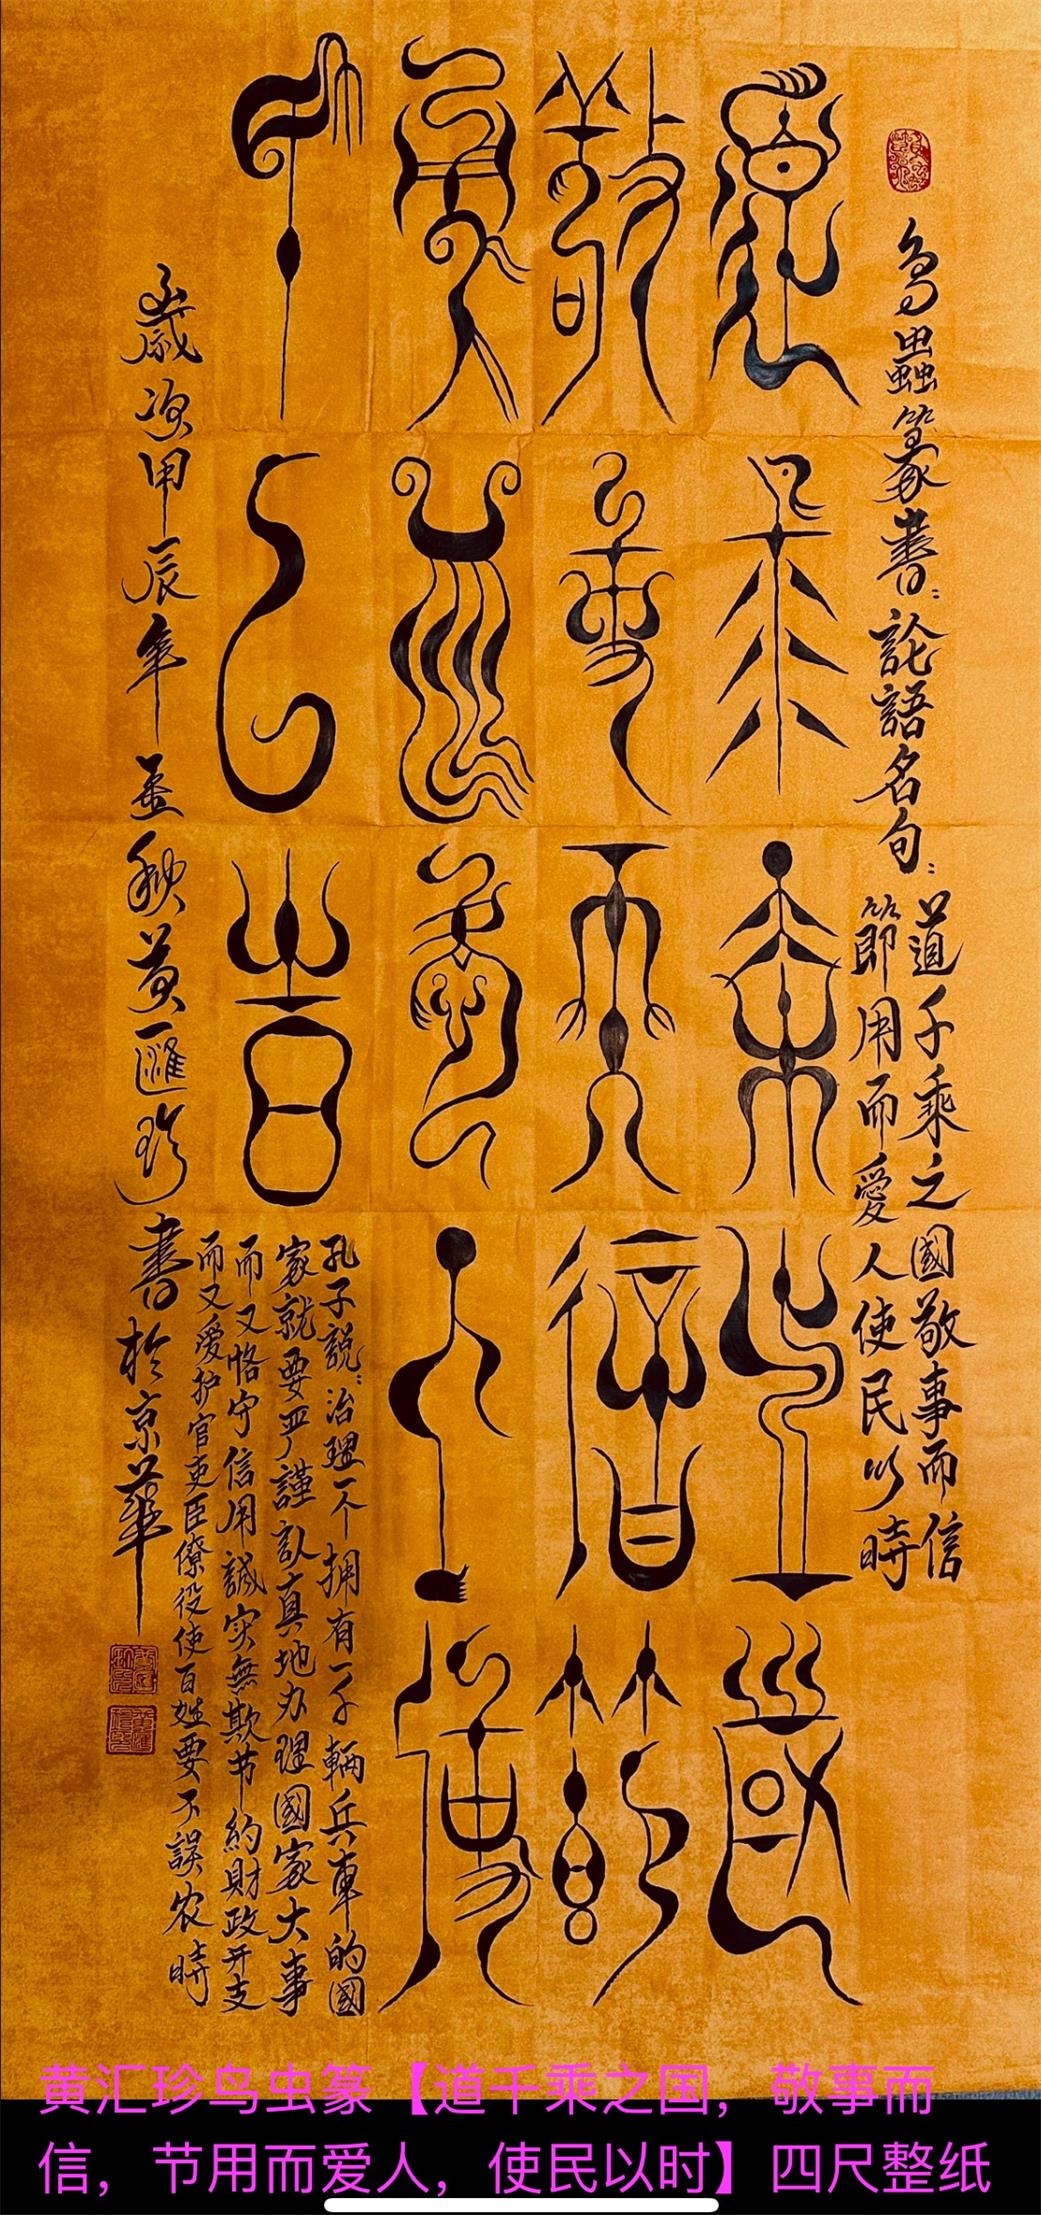 鸟蟲篆書:論語名句:道千乘之國敬事而信
節用而愛人使民以時
道千乘之國
敬事而信節
用而愛人使
民以時
孔子説:治理一个拥有一千輛兵車的國
家就要严謹認真地办理國家大事
而又恪守信用誠实無欺节約財政开支
而又爱护官吏臣僚役使百姓要不誤农時
歲次甲辰年孟秋黄匯珍書於京華
黄汇珍鸟虫篆【道千乘之国，敬事而
信，节用而爱人，使民以时】四尺整纸